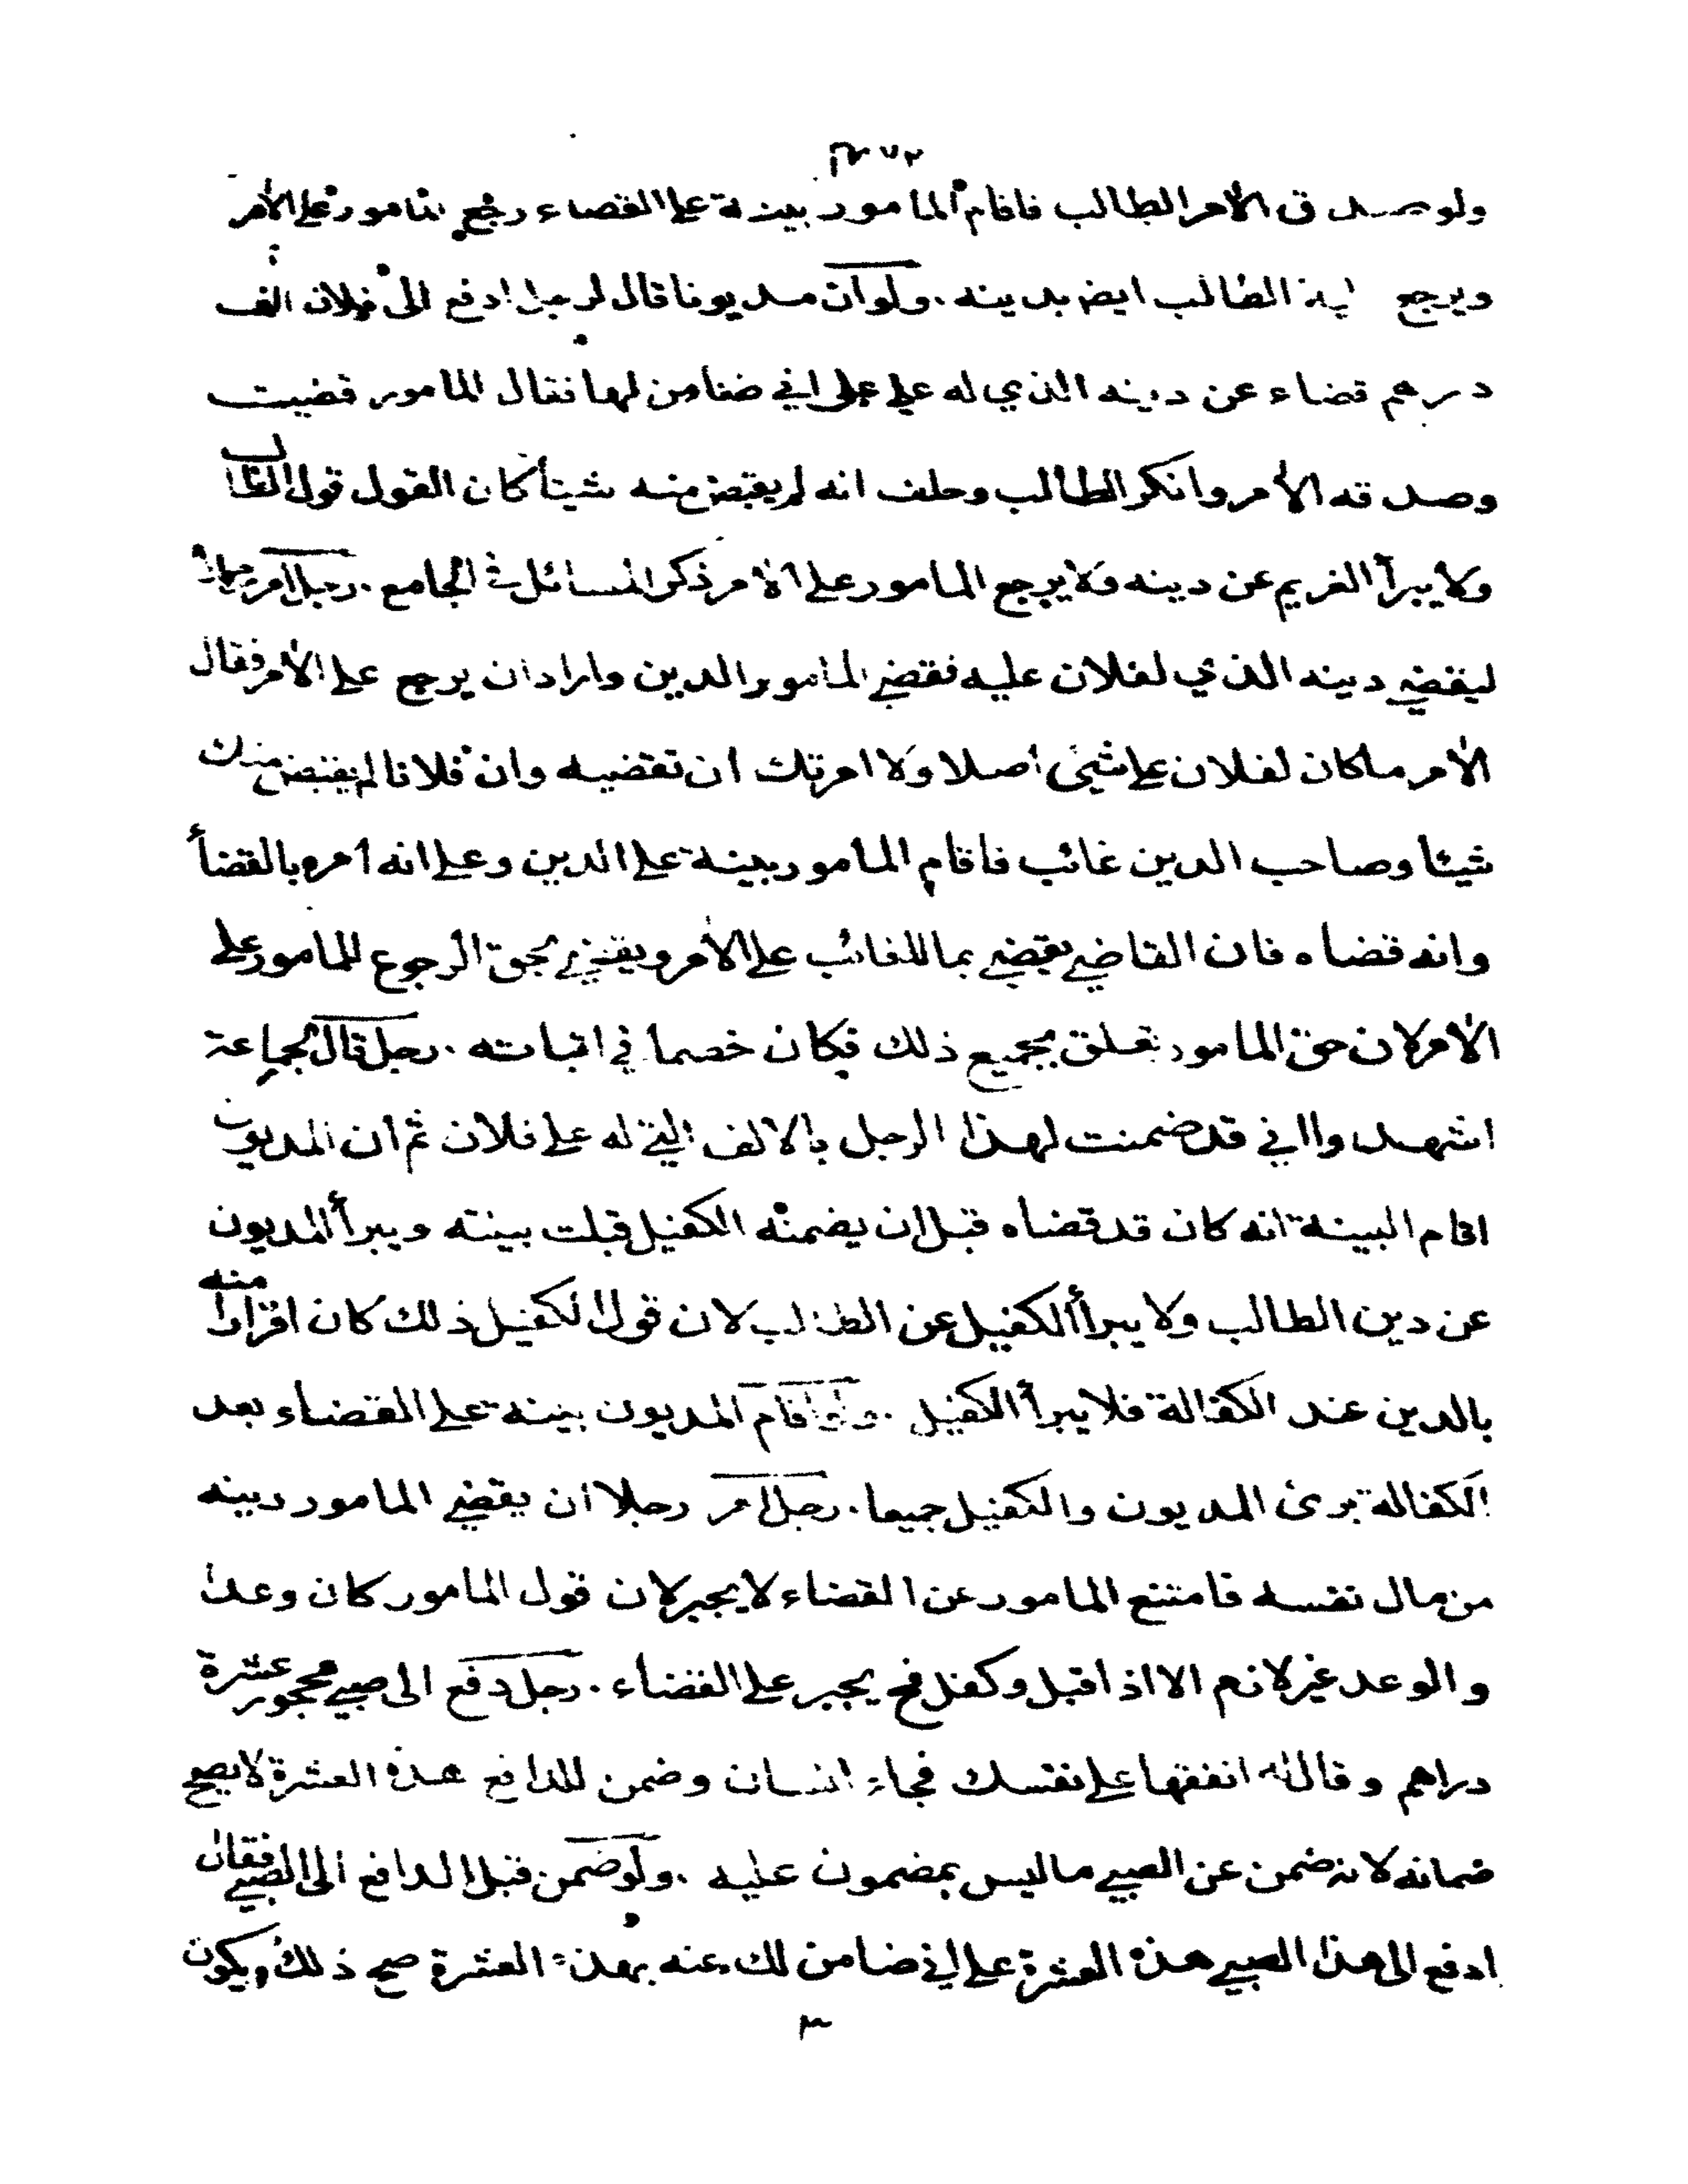 ولو صدق الآمر الطالب فاقام المامور بينة على القضاء رجع المامور على الآمر
ويرجع الطالب ايض بدينه . ولو ان مديونا قال لرجل ادفع الى فلان الف
درهم قضاء عن دينه الذي له علي على اني ضامن لها فقال المامور قضيت
وصدقه الآمر وانكر الطالب وحلف انه لم يقبض منه شيئا كان القول قول الطالب
ولا يبرأ الغريم عن دينه ولا يرجع المامور على الآمر ذكر المسائل في الجامع . رجل امر رجلا
ليقضي دينه الذي لفلان عليه فقضى المامور الدين واراد ان يرجع على الآمر فقال
الآمر ما كان لفلان علي شيئ اصلا ولا امرتك ان تقضيه وان فلانا لم يقبض منك
شيئا وصاحب الدين غائب فاقام المامور بينة على الدين وعلى انه امره بالقضأ
وانه قضاه فان القاضي يقضي بما للغائب على الآمر ويقضي بحق الرجوع للمامور على
الآمر لان حق المامور تعلق بجميع ذلك فكان خصما في اثباته . رجل قال لجماعة
اشهدوا اني قد ضمنت لهذا الرجل بالالف التي له على فلان ثم ان المديون
اقام البينة انه كان قد قضاه قبل ان يضمنه الكفيل قبلت بينته ويبرأ المديون
عن دين الطالب ولا يبرأ الكفيل عن الطالب لان قول الكفيل ذلك كان اقرارا منه
بالدين عند الكفالة فلا يبرأ الكفيل . ولو اقام المديون بينة على القضاء بعد
الكفالة برئ المديون والكفيل جميعا . رجل امر رجلا ان يقضي المامور دينه
من مال نفسه فامتنع المامور عن القضاء لا يجبر لان قول المامور كان وعدا
والوعد غير لازم الا اذا قبل وكفل فح يجبر على القضاء . رجل دفع الى صبي محجور عشرة
دراهم وقال له انفقها على نفسك فجاء انسان وضمن للدافع هذه العشرة لا يصح
ضمانه لانه ضمن عن الصبي ما ليس بمضمون عليه . ولو ضمن قبل الدافع الى الصبي فقال
ادفع الى هذا الصبي هذه العشرة على اني ضامن لك عنه بهذه العشرة صح ذلك ويكون